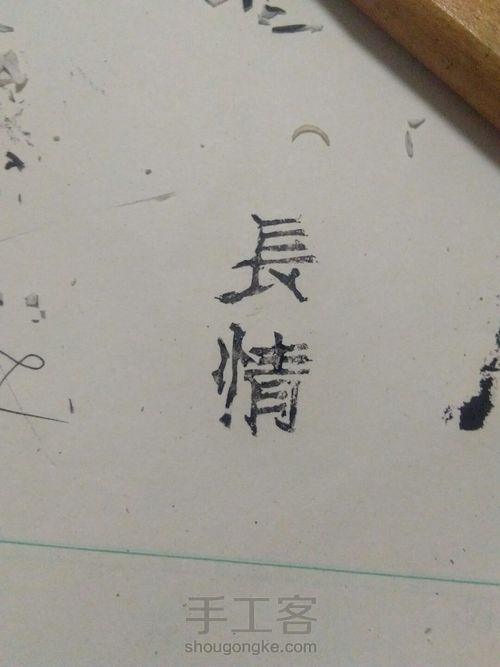 長
情
手工客
shougongke.com